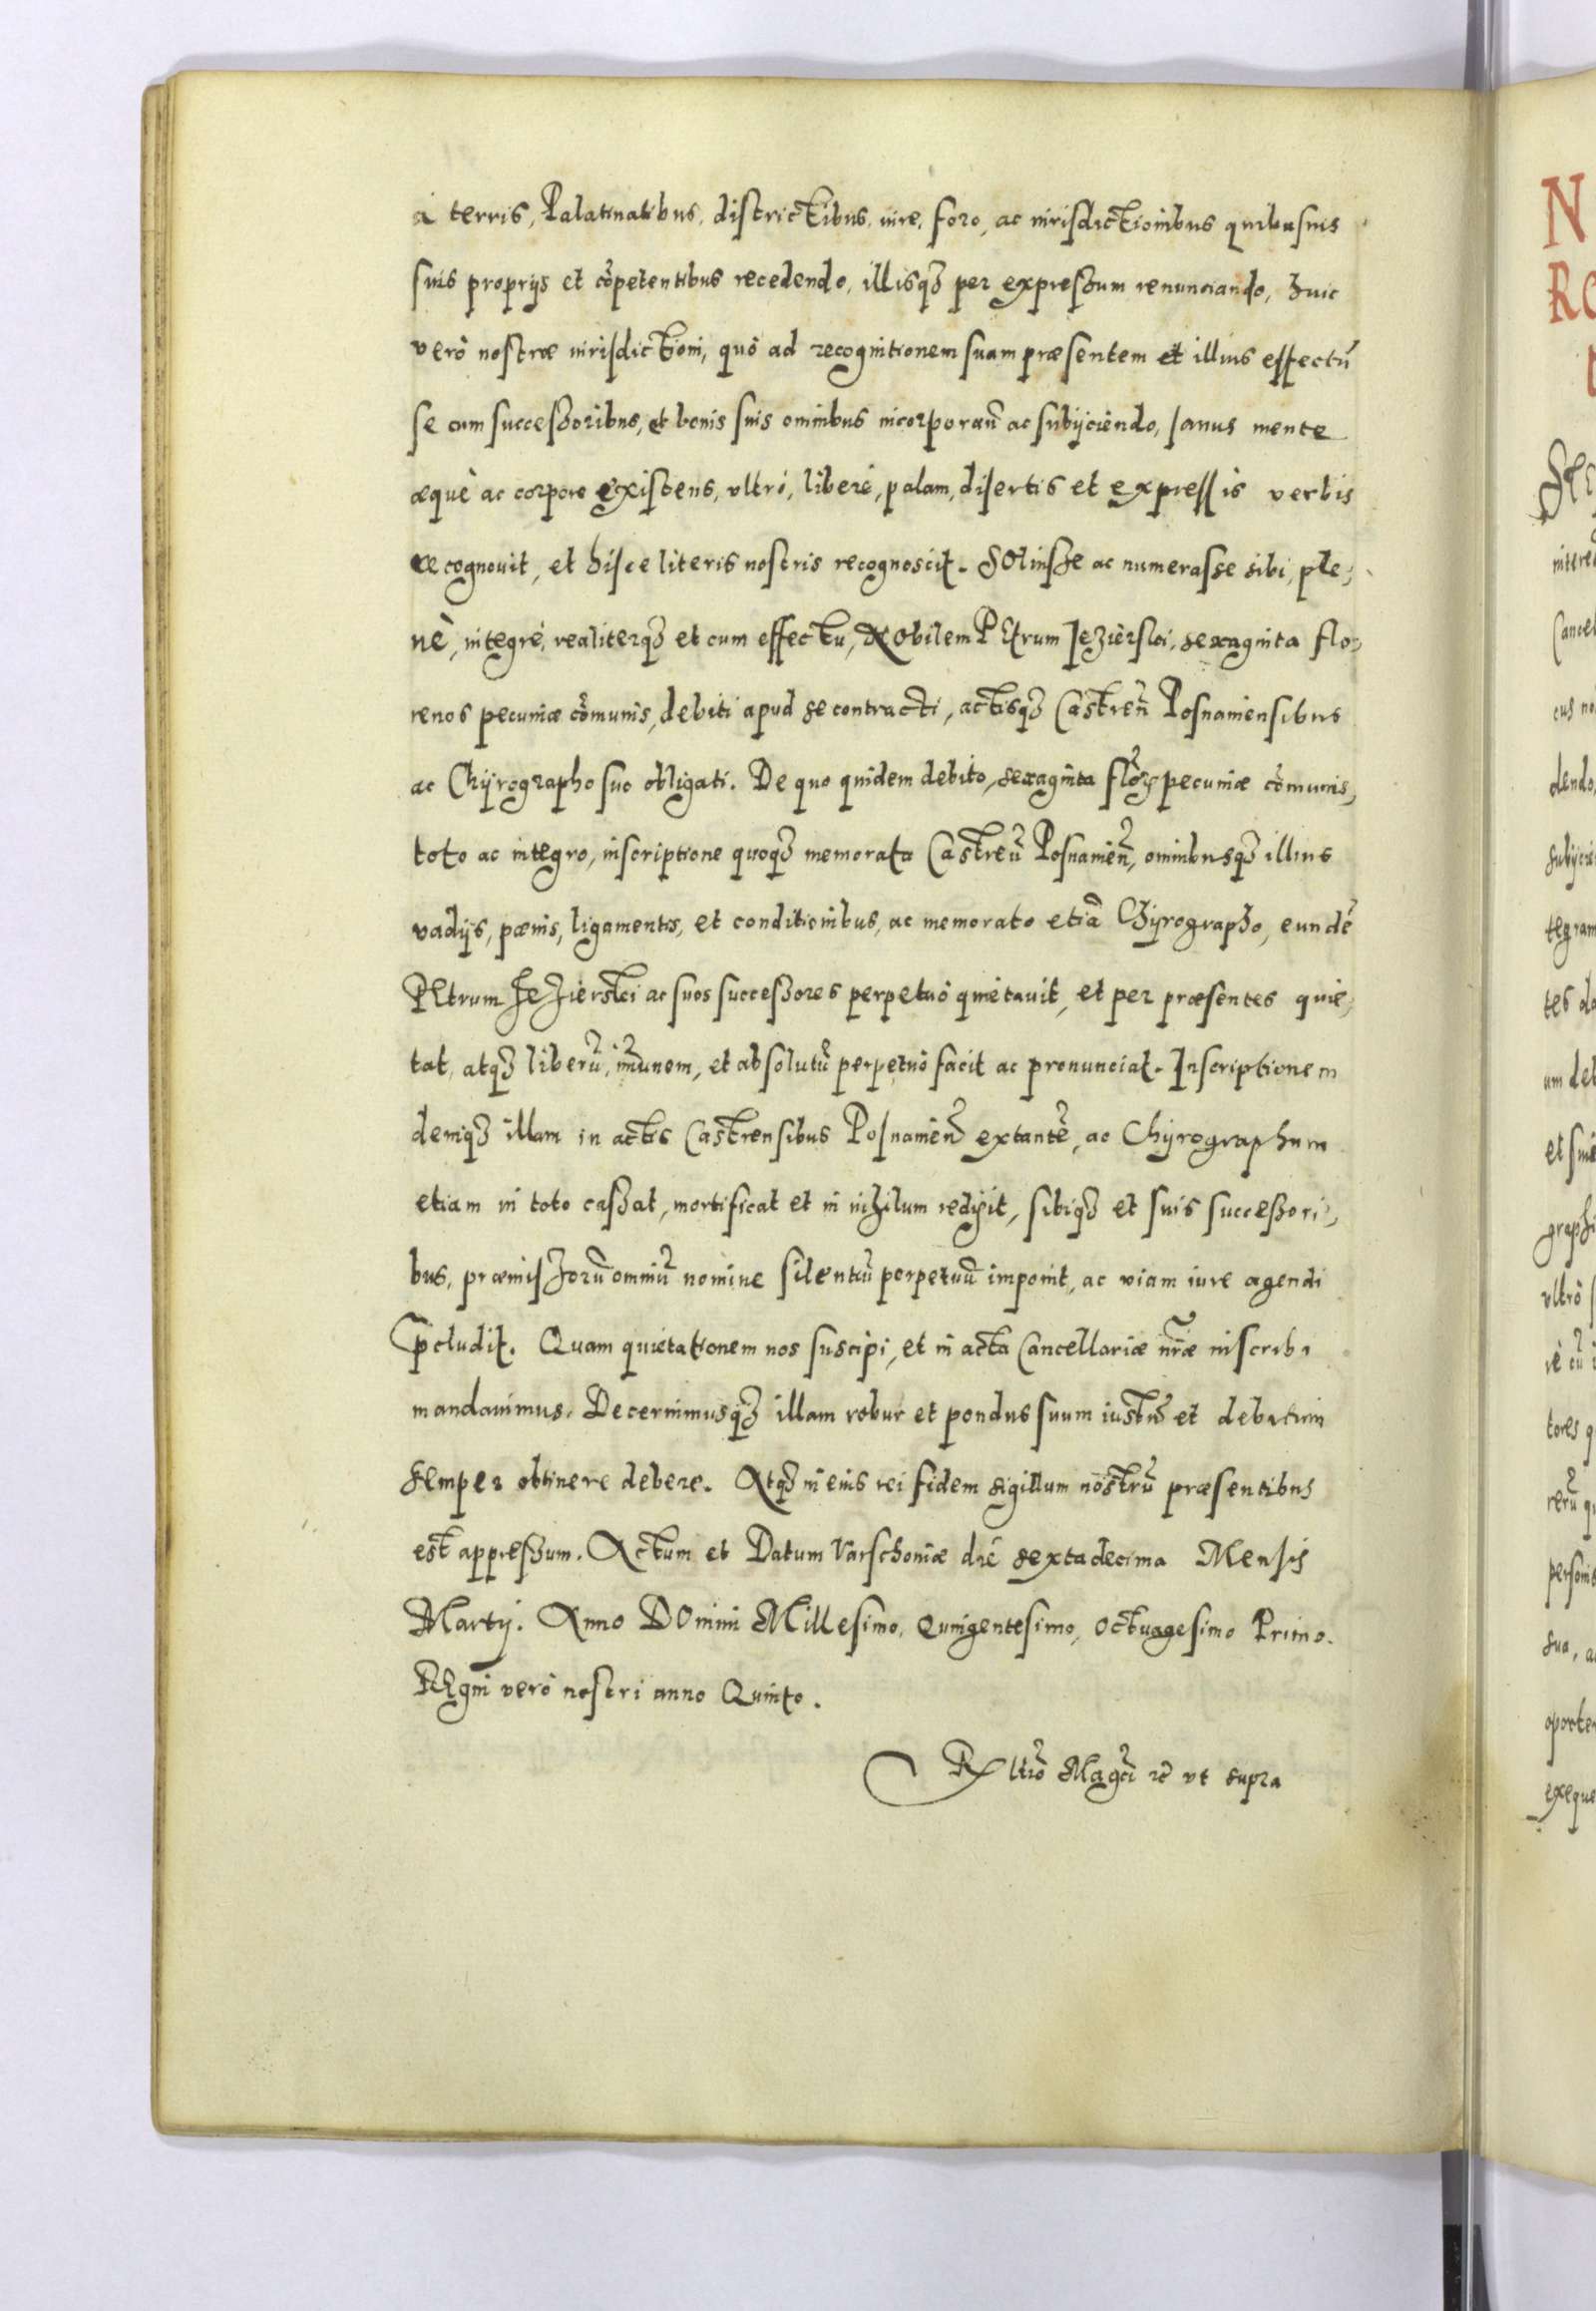 à terris, Palatinatibus, districtibus, iure, foro, ac iurisdictionibus quibusuis
suis proprijs et cõpetentibus recedendo, illisqȝ per expressum renunciando, huic
verò nostræ iurisdictioni, quò ad recognitionem suam præsentem et illius effectũ
se cum successoribus, et bonis suis omnibus incorporań ac subijciendo, sanus mente
æquè ac corpore existens, vltrò, liberè, palam, disertis et expressis verbis
recognouit, et hisce literis nostris recognoscit. SOluisse ac numerasse sibi, ple,
nè, integrè, realiterqȝ et cum effectu, NObilem PEtrum Jezierski, sexaginta flo,
renos pecuniæ cõmunis, debiti apud se contracti, actisqȝ Castreñ Posnaniensibus
ac Chÿrographo suo obligati. De quo quidem debito, sexaginta flõrꝝ pecuniæ cõmunis,
toto ac integro, inscriptione quoqȝ memorata Castreñ Posnanieñ, omnibusqȝ illius
vadijs, pænis, ligamentis, et conditionibus, ac memorato etiã Chÿrographo, eundẽ
PEtrum Jezierski ac suos successores perpetuò quietauit, et per præsentes quie,
tat, atqȝ liberũ, im̃unem, et absolutũ perpetuò facit ac pronunciat. Inscriptionem
deniqȝ illam in actis Castrensibus Posnanieñ extantẽ, ac Chÿrographum
etiam in toto cassat, mortificat et in nihilum redigit, sibiqȝ et suis successori,
bus, præmissorũ omniũ nomine silentiũ perpetuũ imponit, ac viam iure agendi
p̃cludit. Quam quietationem nos suscipi, et in acta Cancellariæ nr̃æ inscribi
mandauimus. Decernimusqȝ illam robur et pondus suum iustũ et debitum
semper obtinere debere. Atqȝ in eius rei fidem sigillum nostrũ præsentibus
est appressum. Actum et Datum Varschouiæ die sexta decima Mensis
Martij. Anno DOmini Millesimo, Quingentesimo, Octuagesimo Primo.
REgni verò nostri anno Quinto.
Rltio Mag̃ci rc̃ vt supra